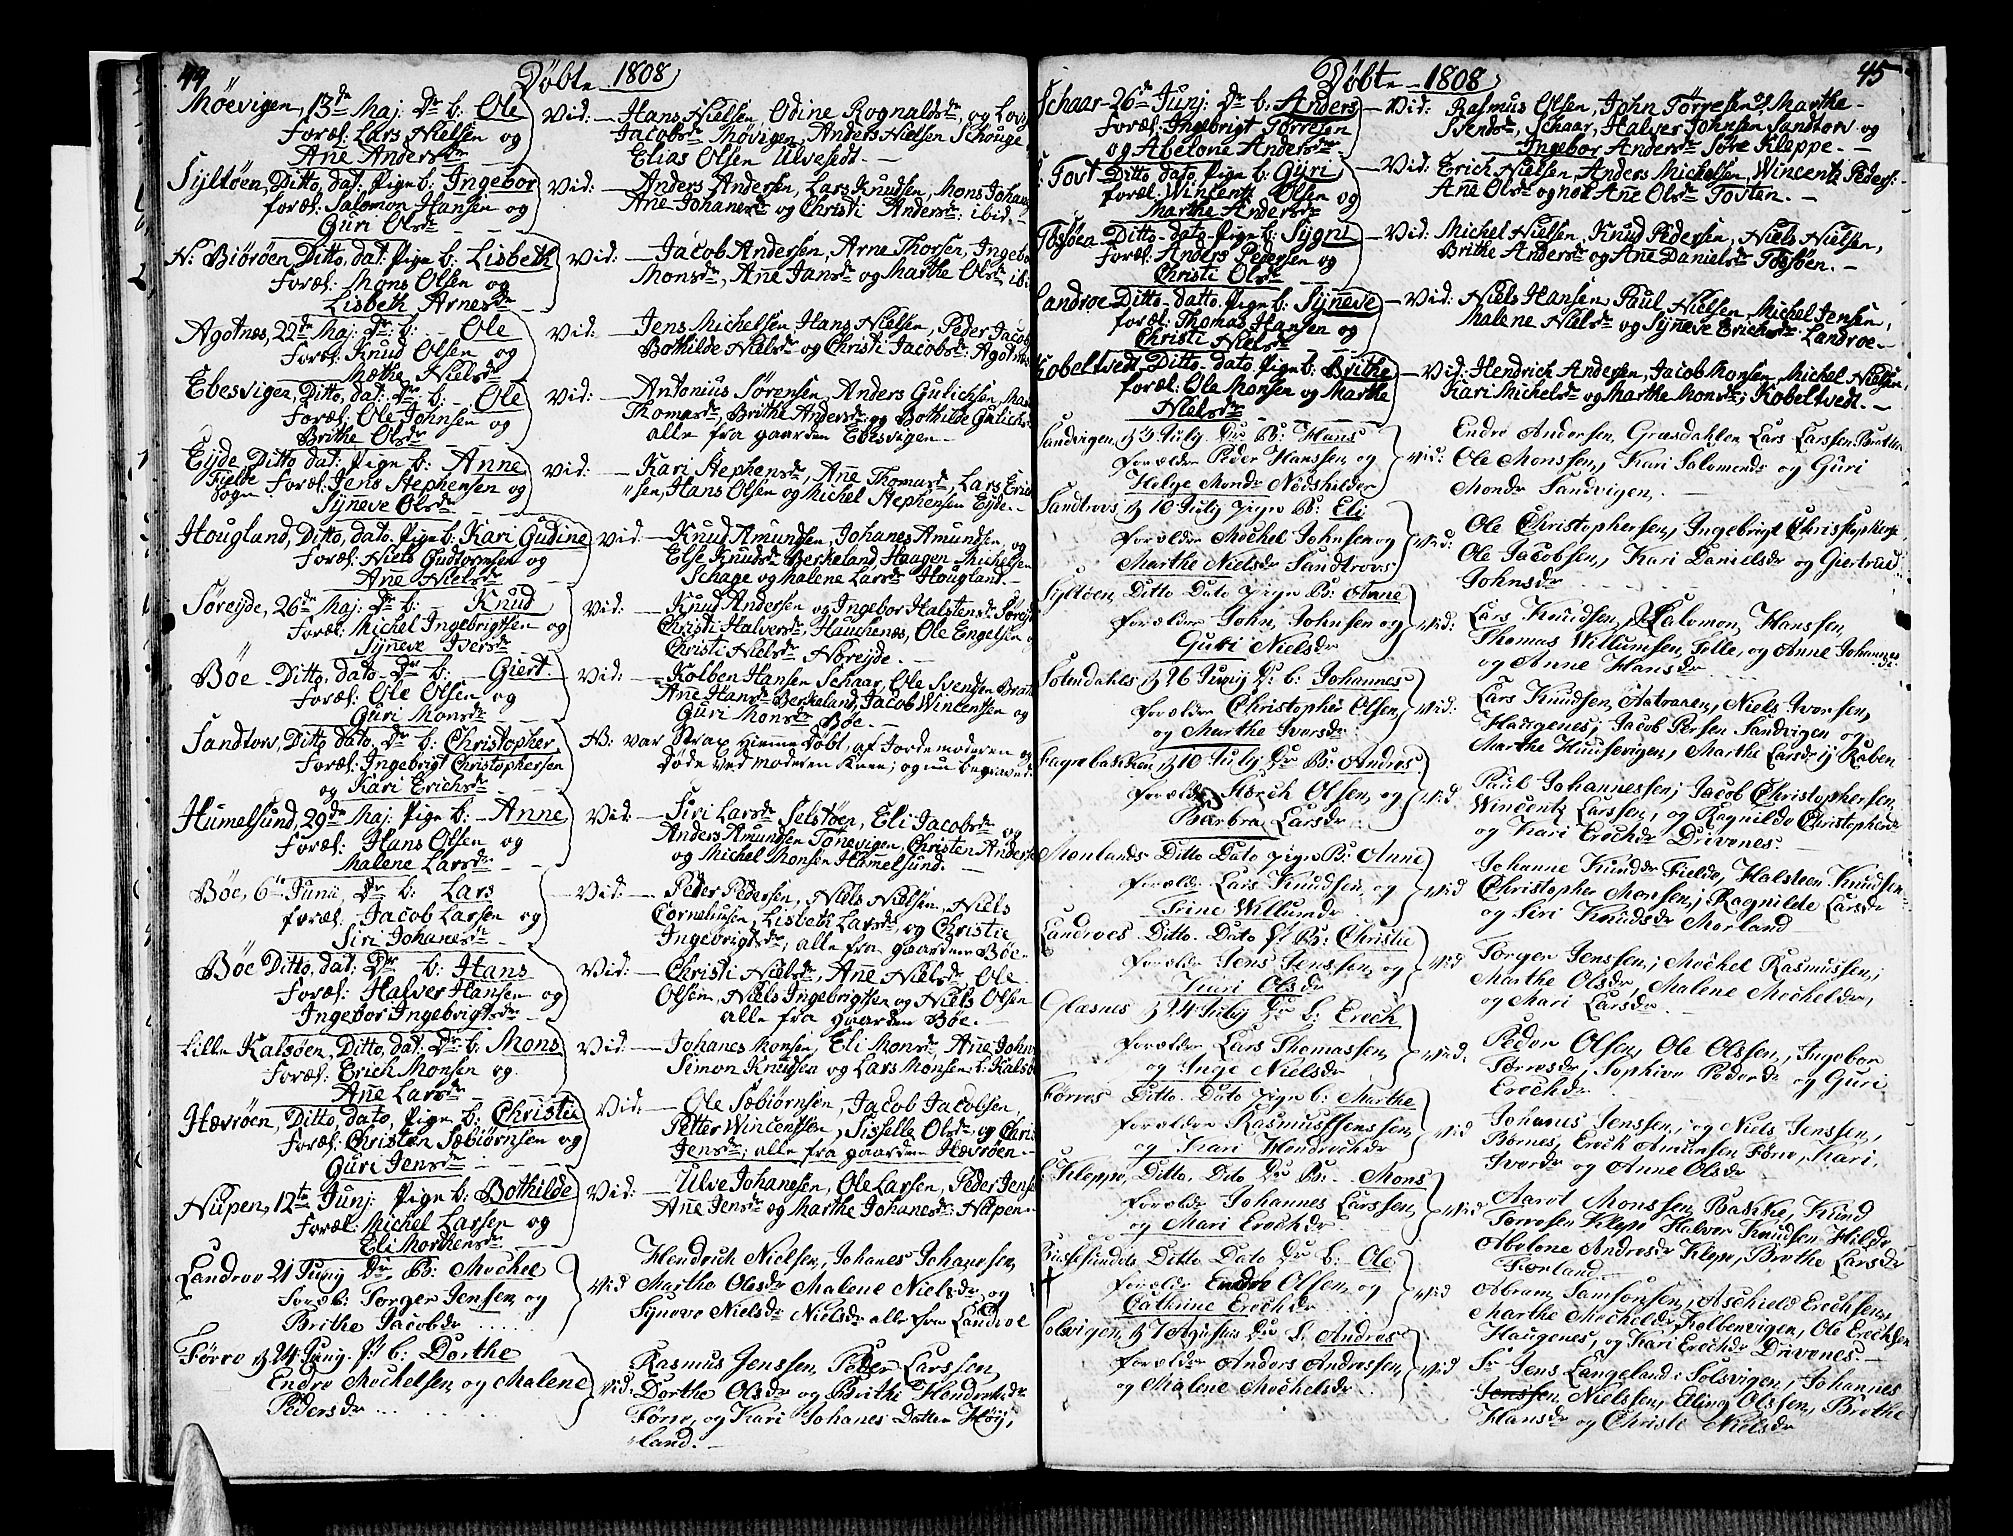 44
Döbte 1808
Möevigen, 13de Maj: Dr b: Ole
Foræl: Lars Nielsen og
Ane Andersdr
Vid: Hans Nielsen, Odine Rognaldsdr, og
Jacobsdr Mövigen, Anders Nielsen Schouge
Elias Olsen Ulvesedt.
Syltöen, Ditto, dat: Pige b: Ingebor
foræl: Salomon Hansen og
Guri Olsdr
Vid: Anders Andersen, Lars Knudsen, Mons
Ane Johanesdr og Christi Andersdr: ibid.
N: Biöröen, Ditto, dat: Pige b: Lisbeth
Foræl: Mons Olsen og
Lisbeth Arnesdr
Vid: Jacob Andersen, Arne Thorsen,
Monsdr, Ane Jansdr og Marthe Olsdr
Agotnes, 22de Maj: Dr: b: Ole
Foræl: Knud Olsen og
Mæthe Nielsdr
Vid: Jens Michelsen, Hans Nielsen, Peder
Bothilde Nielsdr og Christi Jacobsdr:
Ebesvigen, Ditto, dat: Dr b: Ole
Foræl: Ole Johnsen og
Brithe Olsdr
Vid: Antonius Sörensen, Anders Gulichsen,
Thomasdr, Brithe Andersdr og Bothilde
alle fra gaarden Ebesvigen.
Eyde Ditto, dat: Pige b: Anne
Fielde Sogn Foræl: Jens Stephensen og
Syneve Olsdr
Vid: Kari Stephensdr, Ane Thomasdr, Lars
sen, Hans Olsen og Michel Stephensen Eyde.
Hougland, Ditto, dato. Pige b: Kari Gudine
Foræl: Niels Gudtormsen og
Ane Nielsdr
Vid: Knud Amundsen, Johanes Amundsen, og
Else Knudsdr Berkeland, Haagen Michelsen
Schage og Malene Larsdr Hougland.
Söreyde, 26de Maj: Dr b: Knud
Foræl: Michel Ingebrigtsen og
Syneve Iversdr
Vid: Knud Andersen og Ingebor Halstensdr
Christi Halversdr, Hauchenæs, Ole Engelsen
Christi Nielsdr Noreyde.
Böe Ditto, dato. Dr b: Giert.
Foræl: Ole Olsen og
Guri Monsdr
Vid: Kolben Hansen Schaar, Ole Svendsen
Ane Hansdr Berkeland, Jacob Wincentsen og
Guri Monsdr Böe.
Sandtorv, Ditto, dato, Dr b: Christopher
Foræl: Ingebrigt Christophersen
og Kari Erichsdr
N: var Strax hiemme Döbt, af Jordemoderen
döde ved moderen Knee; og nu begravet
Humelsund, 29de Maj: Pige b: Anne
Foræl: Hans Olsen og
Malene Larsdr
Vid: Siri Larsdr Selstöen, Eli Jacobsdr og
Anders Amundsen Tönevigen, Christen
og Michel Monsen Hummelsund.
Böe, 6te Junii, Dr b: Lars
foræl: Jacob Larsen og
Siri Johanesdr
Vid: Peder Pedersen, Niels Nielsen, Niels
Corneliusen, Lisbeth Larsdr, og Christie
Ingebrigtsdr, alle fra gaarden Böe.
Böe Ditto, dat: Dr b: Hans
Foræl: Halver Hansen og
Ingebor Ingebrigtsdr
Vid: Christi Nielsdr, Ane Nielsdr, Ole
Olsen, Niels Ingebrigtsen og Niels Olsen
alle fra gaarden Böe.
Lille Kalsöen, Ditto, dat: Dr b: Mons
Foræl: Erich Monsen og
Ane Larsdr
Vid: Johanes Monsen, Eli Monsdr, Ane
Simon Knudsen og Lars Monsen L: Kalsöen
Hævröen, Ditto, dato, Pige b: Christie
Foræl: Christen Sæbiörnsen og
Guri Jensdr
Vid: Ole Sæbiörnsen, Jacob Jacobsen,
Petter Wincentsen, Sisselle Olsdr og
Jensdr; alle fra gaarden Hævröen.
Nupen, 12te Junj: Pige b: Bothilde
Foræl: Michel Larsen og
Eli Morthensdr
Vid: Ulve Johanesen, Ole Larsen, Peder
Ane Jensdr og Marthe Johanesdr: Nupen.
Landroe 21 Juny Dr B: Mechel
foræl: Torger Jensen og
Brithe Jacobdr
Vid Hendrich Nielsen, Johanes Johanesen,
Marthe Olesdr Malene Nielsdr og
Synove Nielsdr alle fra Landroe
Förre d 24 Juny. P b: Dorthe
Endre Mechelsen og Malene
Pedersdr
Vid: Rasmus Jenssen, Peder Larssen,
Dorthe Olsdr og Brithe
Förre, og Kari Johanes Datter Höy,
land.
45
Döbte 1808
Schaar 26de Junj: Dr b: Anders
Foræl: Ingebrigt Törresen
og Abelone Andersdr
Vid: Rasmus Olsen, John Törresen, Marthe
Svendsdr, Schaar, Halver Johnsen Sandtorv og
Ingebor Andersdr Söre Kleppe.
Toft Ditto, dato, Pige b: Gyri
foræl: Wincentz Olsen og
Marthe Andersdr
Vid: Erich Nielsen, Anders Michelsen, Wincentz Peders:
Ane Olsdr og nok Ane Olsdr Toften.
Tofsöen Ditto, dato. Pige b: Sygni
Foræl: Anders Pedersen og
Christi Olsdr
Vid: Michel Nielsen, Knud Pedersen, Niels Nielsen,
Brithe Andersdr og Ane Danielsdr Tofsöen.
Landroe Ditto, dato, Pige b: Syneve
foræl: Thomas Hansen og
Christi Nielsdr
Vid: Niels Hansen, Paul Nielsen, Michel Jensen,
Malene Nielsdr og Syneve Erichsdr: Landroe.
Kobeltvedt, Ditto, dato, Pige b: Brithe
foræl: Ole Monsen og Marthe
Nielsdr
Vid: Hendrich Andersen, Jacob Monsen, Michel Nielsen,
Kari Michelsdr og Marthe Monsdr; Kobeltvedt.
Sandvigen, d 3 July Dr B: Hans
forældre Peder Hanssen og
Helge Monsdr
Vid: Endre Andersen, Græsdahlen Lars Larssen
Ole Monssen, Kari Salomonds og Guri
Monsdr Sandvigen,
Sandtrovs d 10 July pige B: Eli
forældre Mechel Johnsen og
Marthe Nielsdr Sandtrovs
Vid: Ole Christophersen, Ingebrigt
Ole Jacobsen, Kari Danielsdr og Giertrud
Johnsdr
Syltöen Ditto Dato pige B: Anne
forældre John Johnsen og
Guri Nielsdr
Vid: Lars Knudsen, Salomon Hanssen,
Thomas Willumsen, Telle, og Anne
og Anne Hansdr
d 16 July Dr b: Johannes
forældre Christopher Olsen,
og Marthe Iversdr
Vid: Lars Knudsen, Niels Iversen,
Haugenes, Jacob Persen Sandvigen og
Marthe Marthe Larsdr
d 10 July Dr B: Andres
forældre Olsen, og
Barbra Larsdr
Vid Paul Johannessen, Jacob Christophersen,
Wincentz Larssen, og Ragnilde
og Kari Erechdr Drivenes
Ditto Dato pige B: Anne
forældre Lars Knudsen og
Willumdr
Vid Johanne Knudsdr Fielde, Halsteen Knudsen
Christopher Monsen, Ragnilde Larsdr
og Siri Knudsdr Morland
Landroes Ditto. Dato P B: Christie
forældre Jens Jenssen, og
Kari Olsdr
Vid Torger Jenssen, Mechel Rasmussen,
Marthe Olsdr, Malene Mecheldr,
og Mari Larsdr
Glæsnes d 24 July Dr b: Erech
forældre Lars Thomassen,
og Inge Nielsdr
Vid. Peder Olsen, Ole Olssen, Ingebor
Sophive Pedersdr og Guri
Erechdr
Förres Ditto Dato pige b: Marthe
forældre Rasmus Jenssen,
og Kari Hendrechdr
Vid Johanes Jenssen, og Niels Jenssen,
Erech Amunsen Förre, Kari
Iversdr og Anne Olsdr
Kleppe, Ditto, Dito Dr B: Mons
forældre Johannes Larssen,
og Mari Erechdr
Vid Monssen Bakke, Knud
Torresen Klepe Halver Knudsen Hilde
Abelone Andresdr Klepe, Brethe Larsdr
Förland
Ditto Dato Dr b: Ole
forældre Endre Olsen, og
Cathrine Erechdr
Vid Abram Samsonsen, Aschield Erechsen,
Marthe Mecheldr Kolbenvigen, Ole Erechsen
Haugenes, og Kari Erechdr Drivenes.
Solsvigen, d 7 Dr b. Andres
forældre Anders Andressen,
og Malene Mechelsdr
Vid Sr Jens Langeland: Solsvigen, Johannes
Jenssen, Nielssen, Elling Olssen, Brethe
Hansdr og Christi Nielsdr